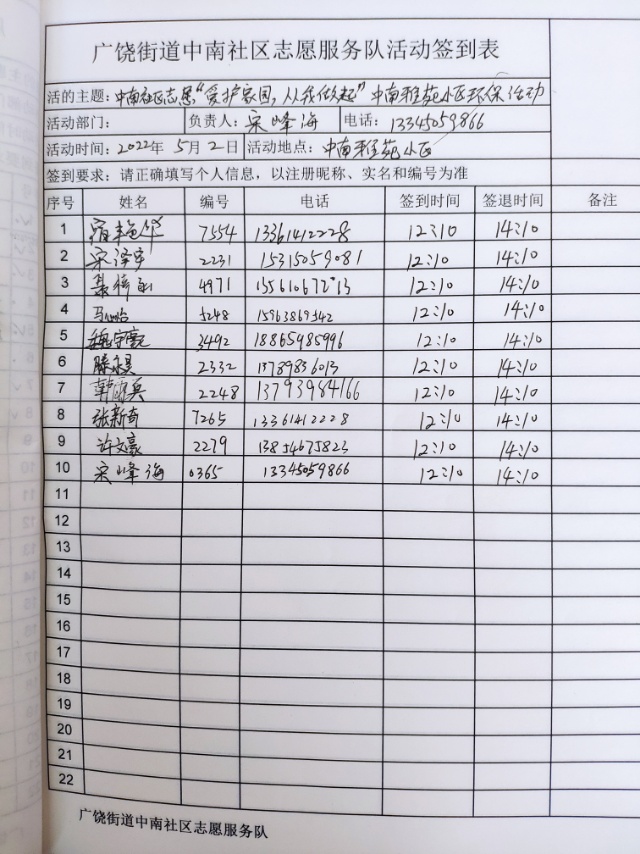 广饶街道中南社区志愿服务队活动签到表
活的主题：中南社区志愿"爱护家园，从我做起"中南雅苑小区环保活动
活动部门： 负责人：宋峰海 电话：13345059866
活动时间：2022年5月2日 活动地点：中南雅苑小区
签到要求：请正确填写个人信息，以注册昵称、实名和编号为准
序号 姓名 编号 电话 签到时间 签退时间 备注
1 7554 13361412228 12:10 14:10
2 宋泽宇 2231 15315059081 12:10 14:10
3 4971 12:10 14:10
4 5248 15963869542 12:10 14:10
5 魏宇豪 3492 18865985996 12:10 14:10
6 2332 13789836013 12:10 14:10
7 2248 13793984166 12:10 14:10
8 张新奇 7265 13361412228 12:10 14:10
9 许文豪 2279 13854675823 12:10 14:10
10 宋峰海 0365 13345059866 12:10 14:10
11
12
13
14
15
16
17
18
19
20
21
22
广饶街道中南社区志愿服务队